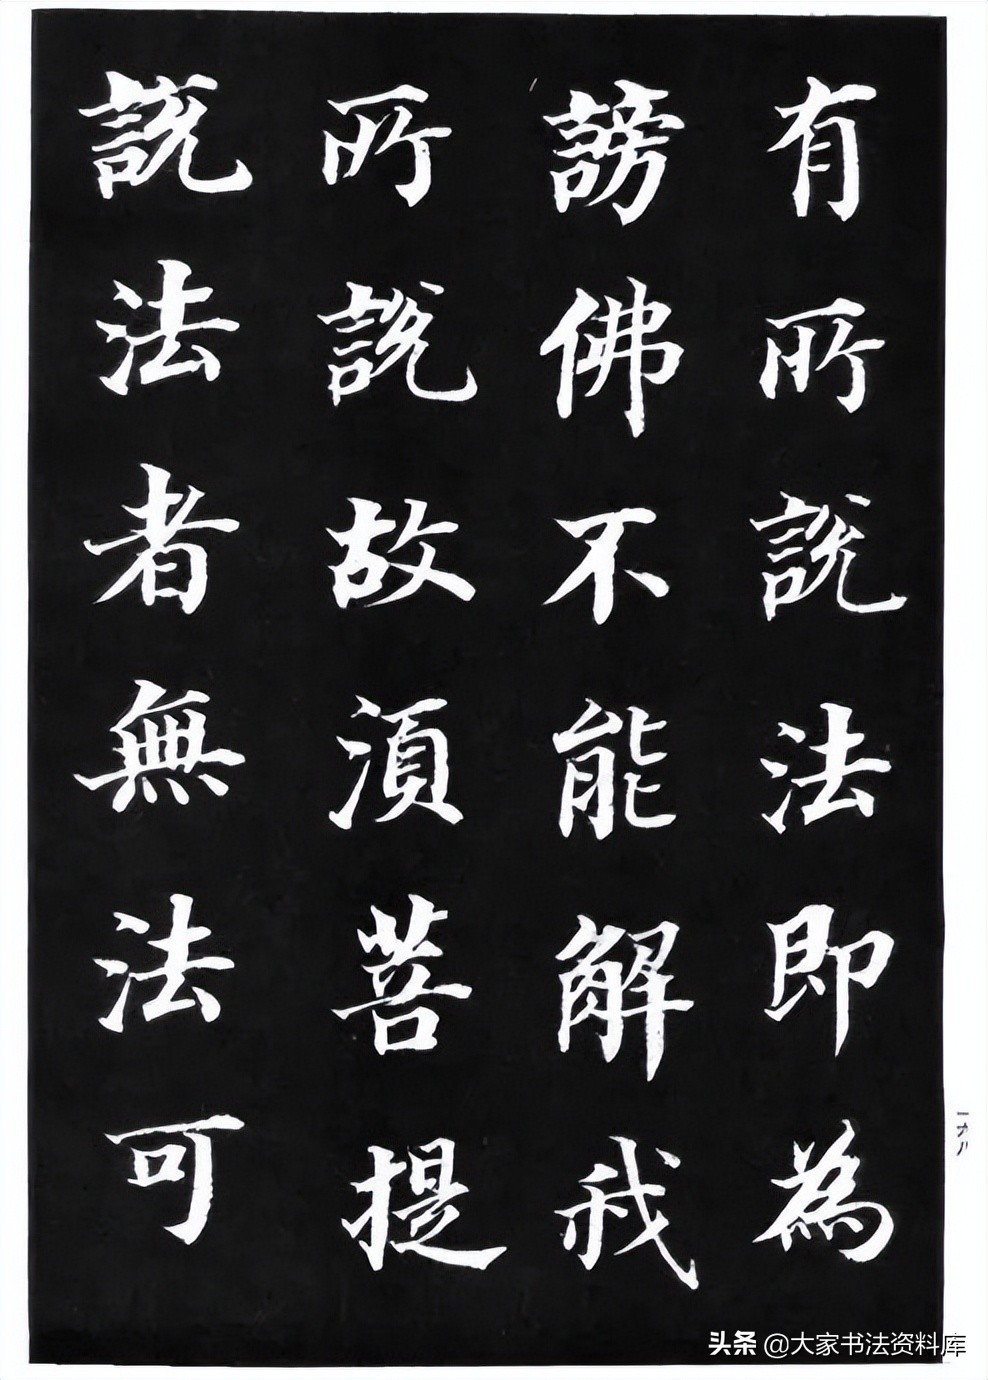 有所說法即為
謗佛不能解我
所說故須菩提
說法者無法可
一六八
头条 @大家书法资料库